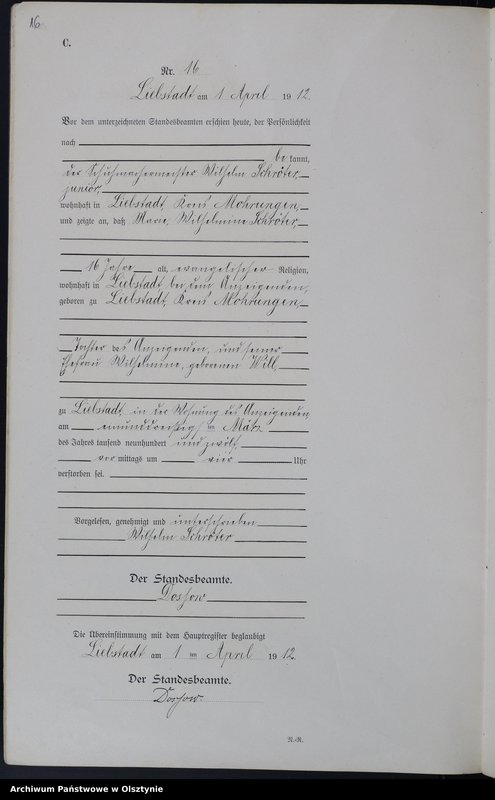 16
C.
Nr. 16
Liebstadt am 1 April 1912.
Vor dem unterzeichneten Standesbeamten erschien heute, der Persönlichkeit
nach
be kannt,
der Schuhmachermeister Wilhelm Schröter,
junior,
wohnhaft in Liebstadt, Kreis Mohrungen,
und zeigte an, daß Marie Wilhelmine Schröter,
16 Jahre alt, evangelischer Religion,
wohnhaft in Liebstadt bei dem Anzeigenden,
geboren zu Liebstadt, Kreis Mohrungen,
Tochter des Anzeigenden, und seiner
Ehefrau Wilhelmine, geborenen Will,
zu Liebstadt, in der Wohnung des Anzeigenden
am einunddreißigsten März
des Jahres tausend neunhundert und zwölf,
vor mittags um vier Uhr
verstorben sei.
Vorgelesen, genehmigt und unterschrieben
Wilhelm Schröter
Der Standesbeamte.
Die Übereinstimmung mit dem Hauptregister beglaubigt
Liebstadt am 1 ten April 1912.
Der Standesbeamte.
N.-R.
Archiwum Państwowe w Olsztynie